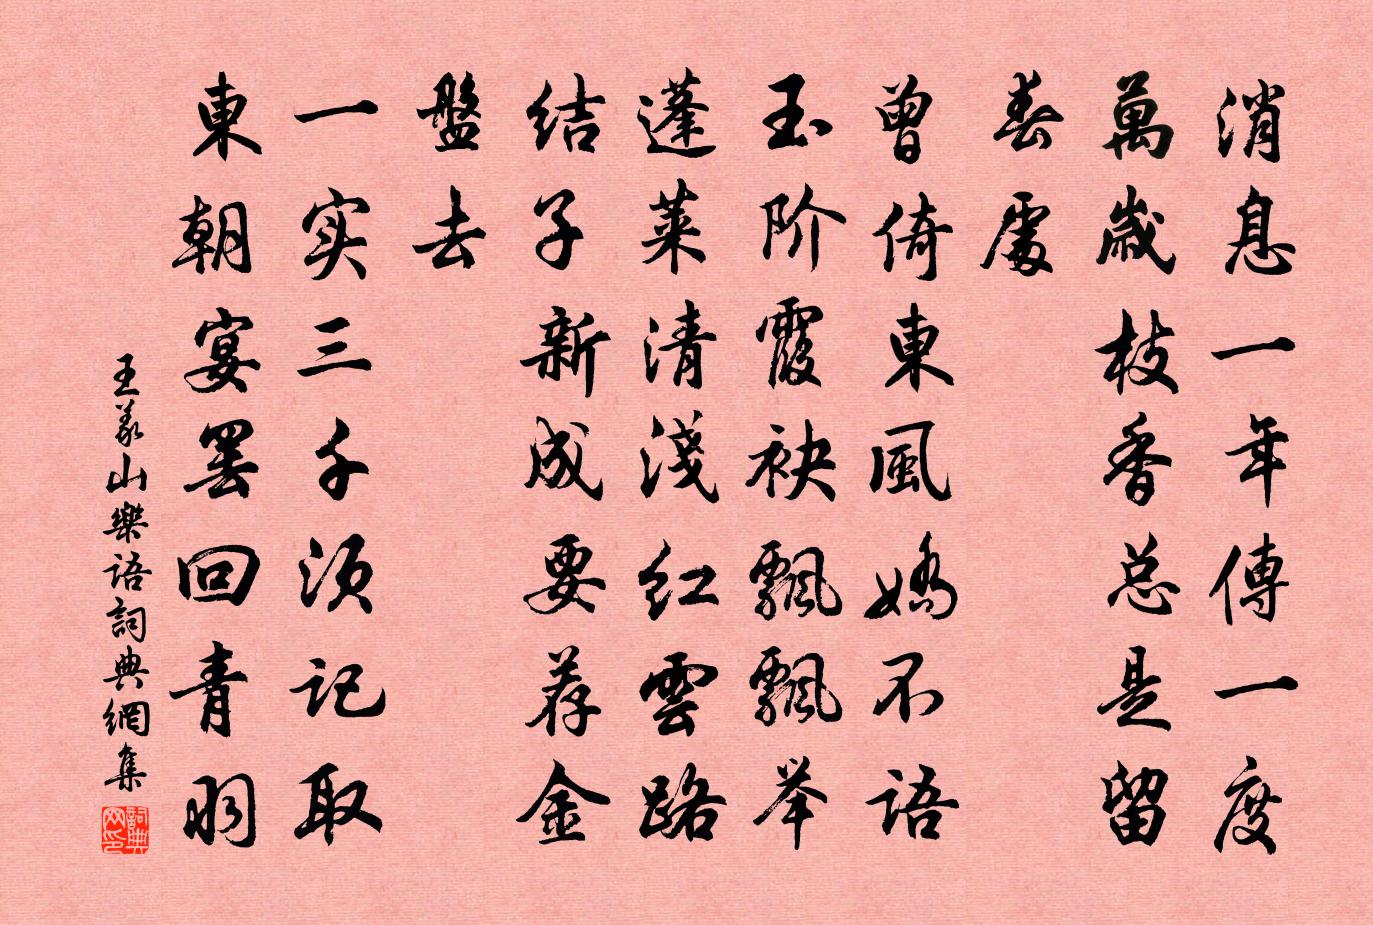 消息一年傳一度
萬歲枝香总是留
春處
曾倚東風嬌不語
玉阶霞袂飄飄举
蓬莱清淺红雲路
结子新成要荐金
盤去
一实三千须记取
東朝宴罢回青羽
王義山樂语詞典網集
詞典网印